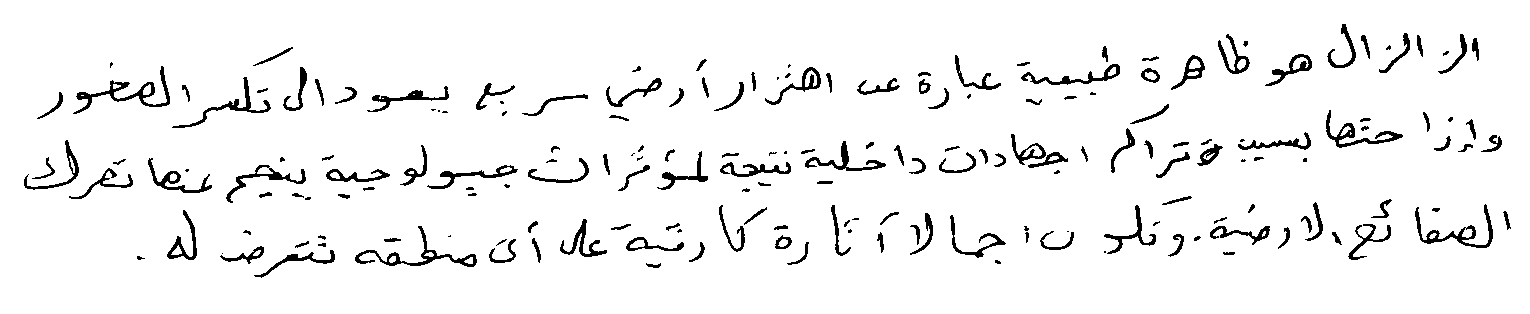 الزالزال هو ظاهرة طبيعية عبارة عن اهتزاز أرضي سريع يعود الى تكسر الصخور
وإزاحتها بسبب تراكم اجهادات داخلية نتيجة لمؤثرات جيولوجية ينجم عنها تحرك
الصفائح الارضية. وتكون اجمالا آثارة كارثية على أى منطقه تتعرض له.